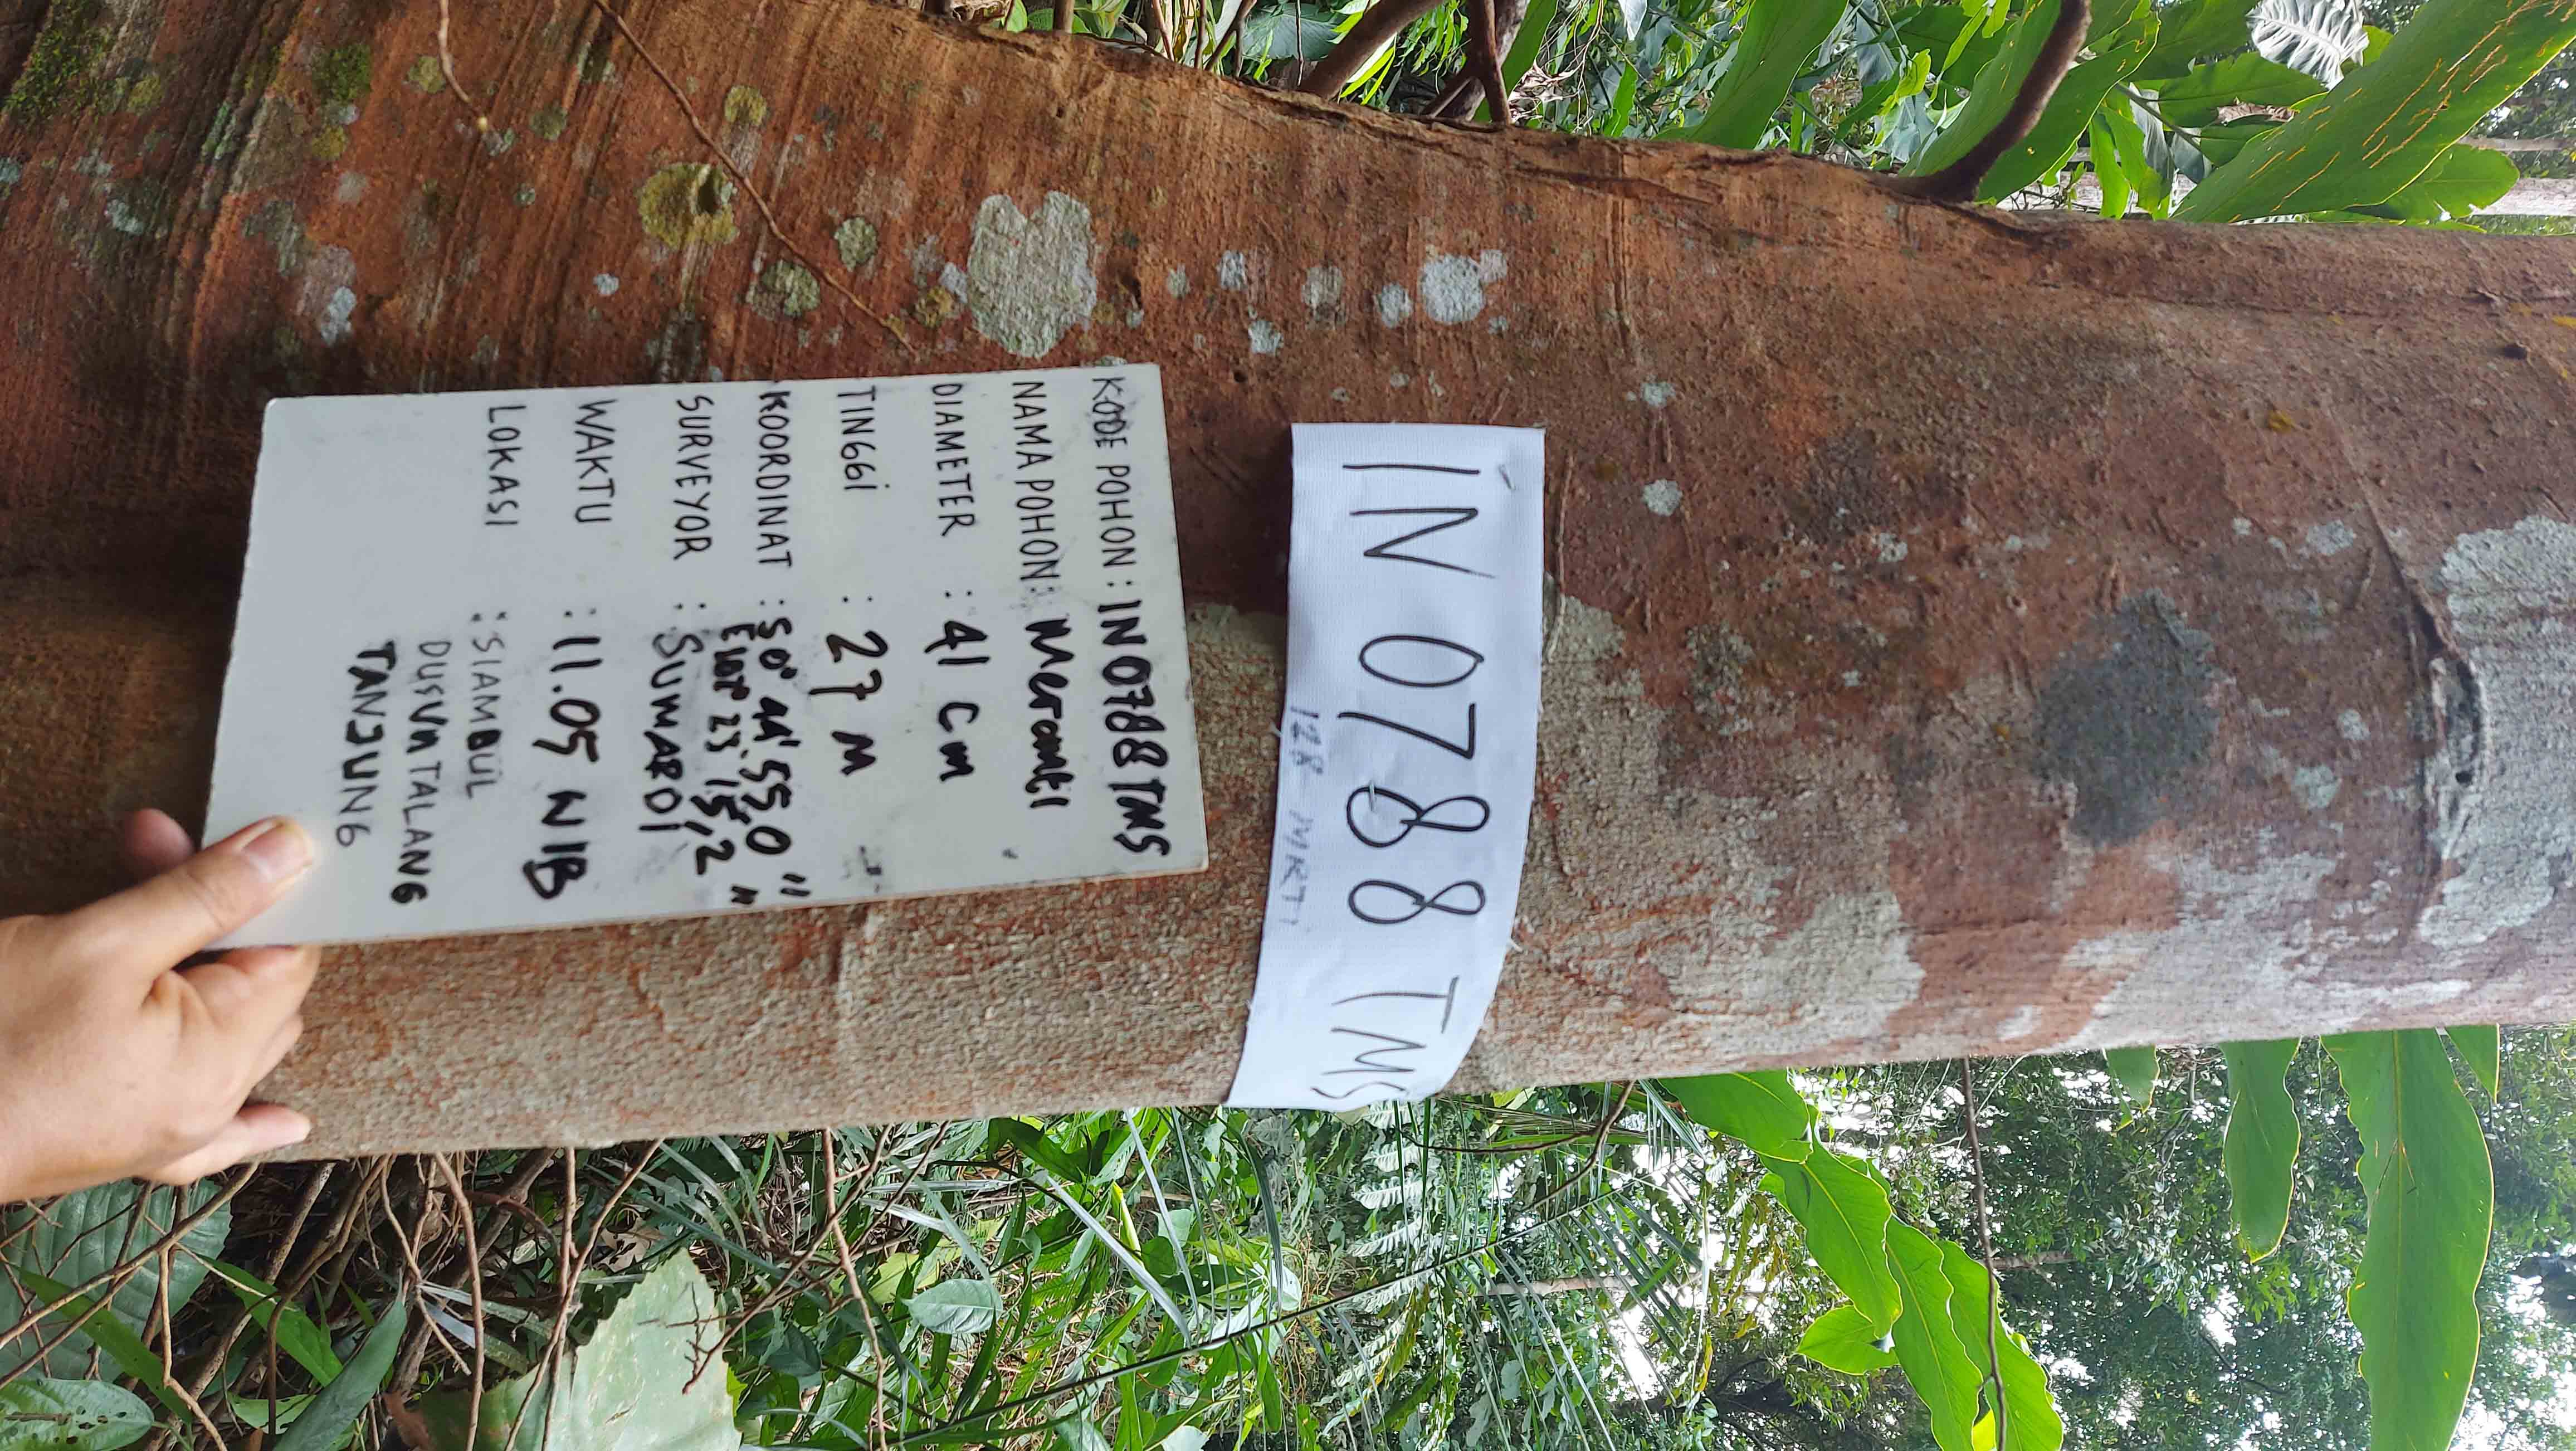 IN 0788 TMS
128 MRTI
KODE POHON : IN0788TMS
NAMA POHON: Meranti
DIAMETER : 41 cm
TINGGI : 27 M
KOORDINAT : S 0° 44' 55,0"
E 102° 23' 15,2"
SURVEYOR : SUMARDI
WAKTU : 11.05 WIB
LOKASI : SIAMBUL
DUSUN TALANG
TANJUNG